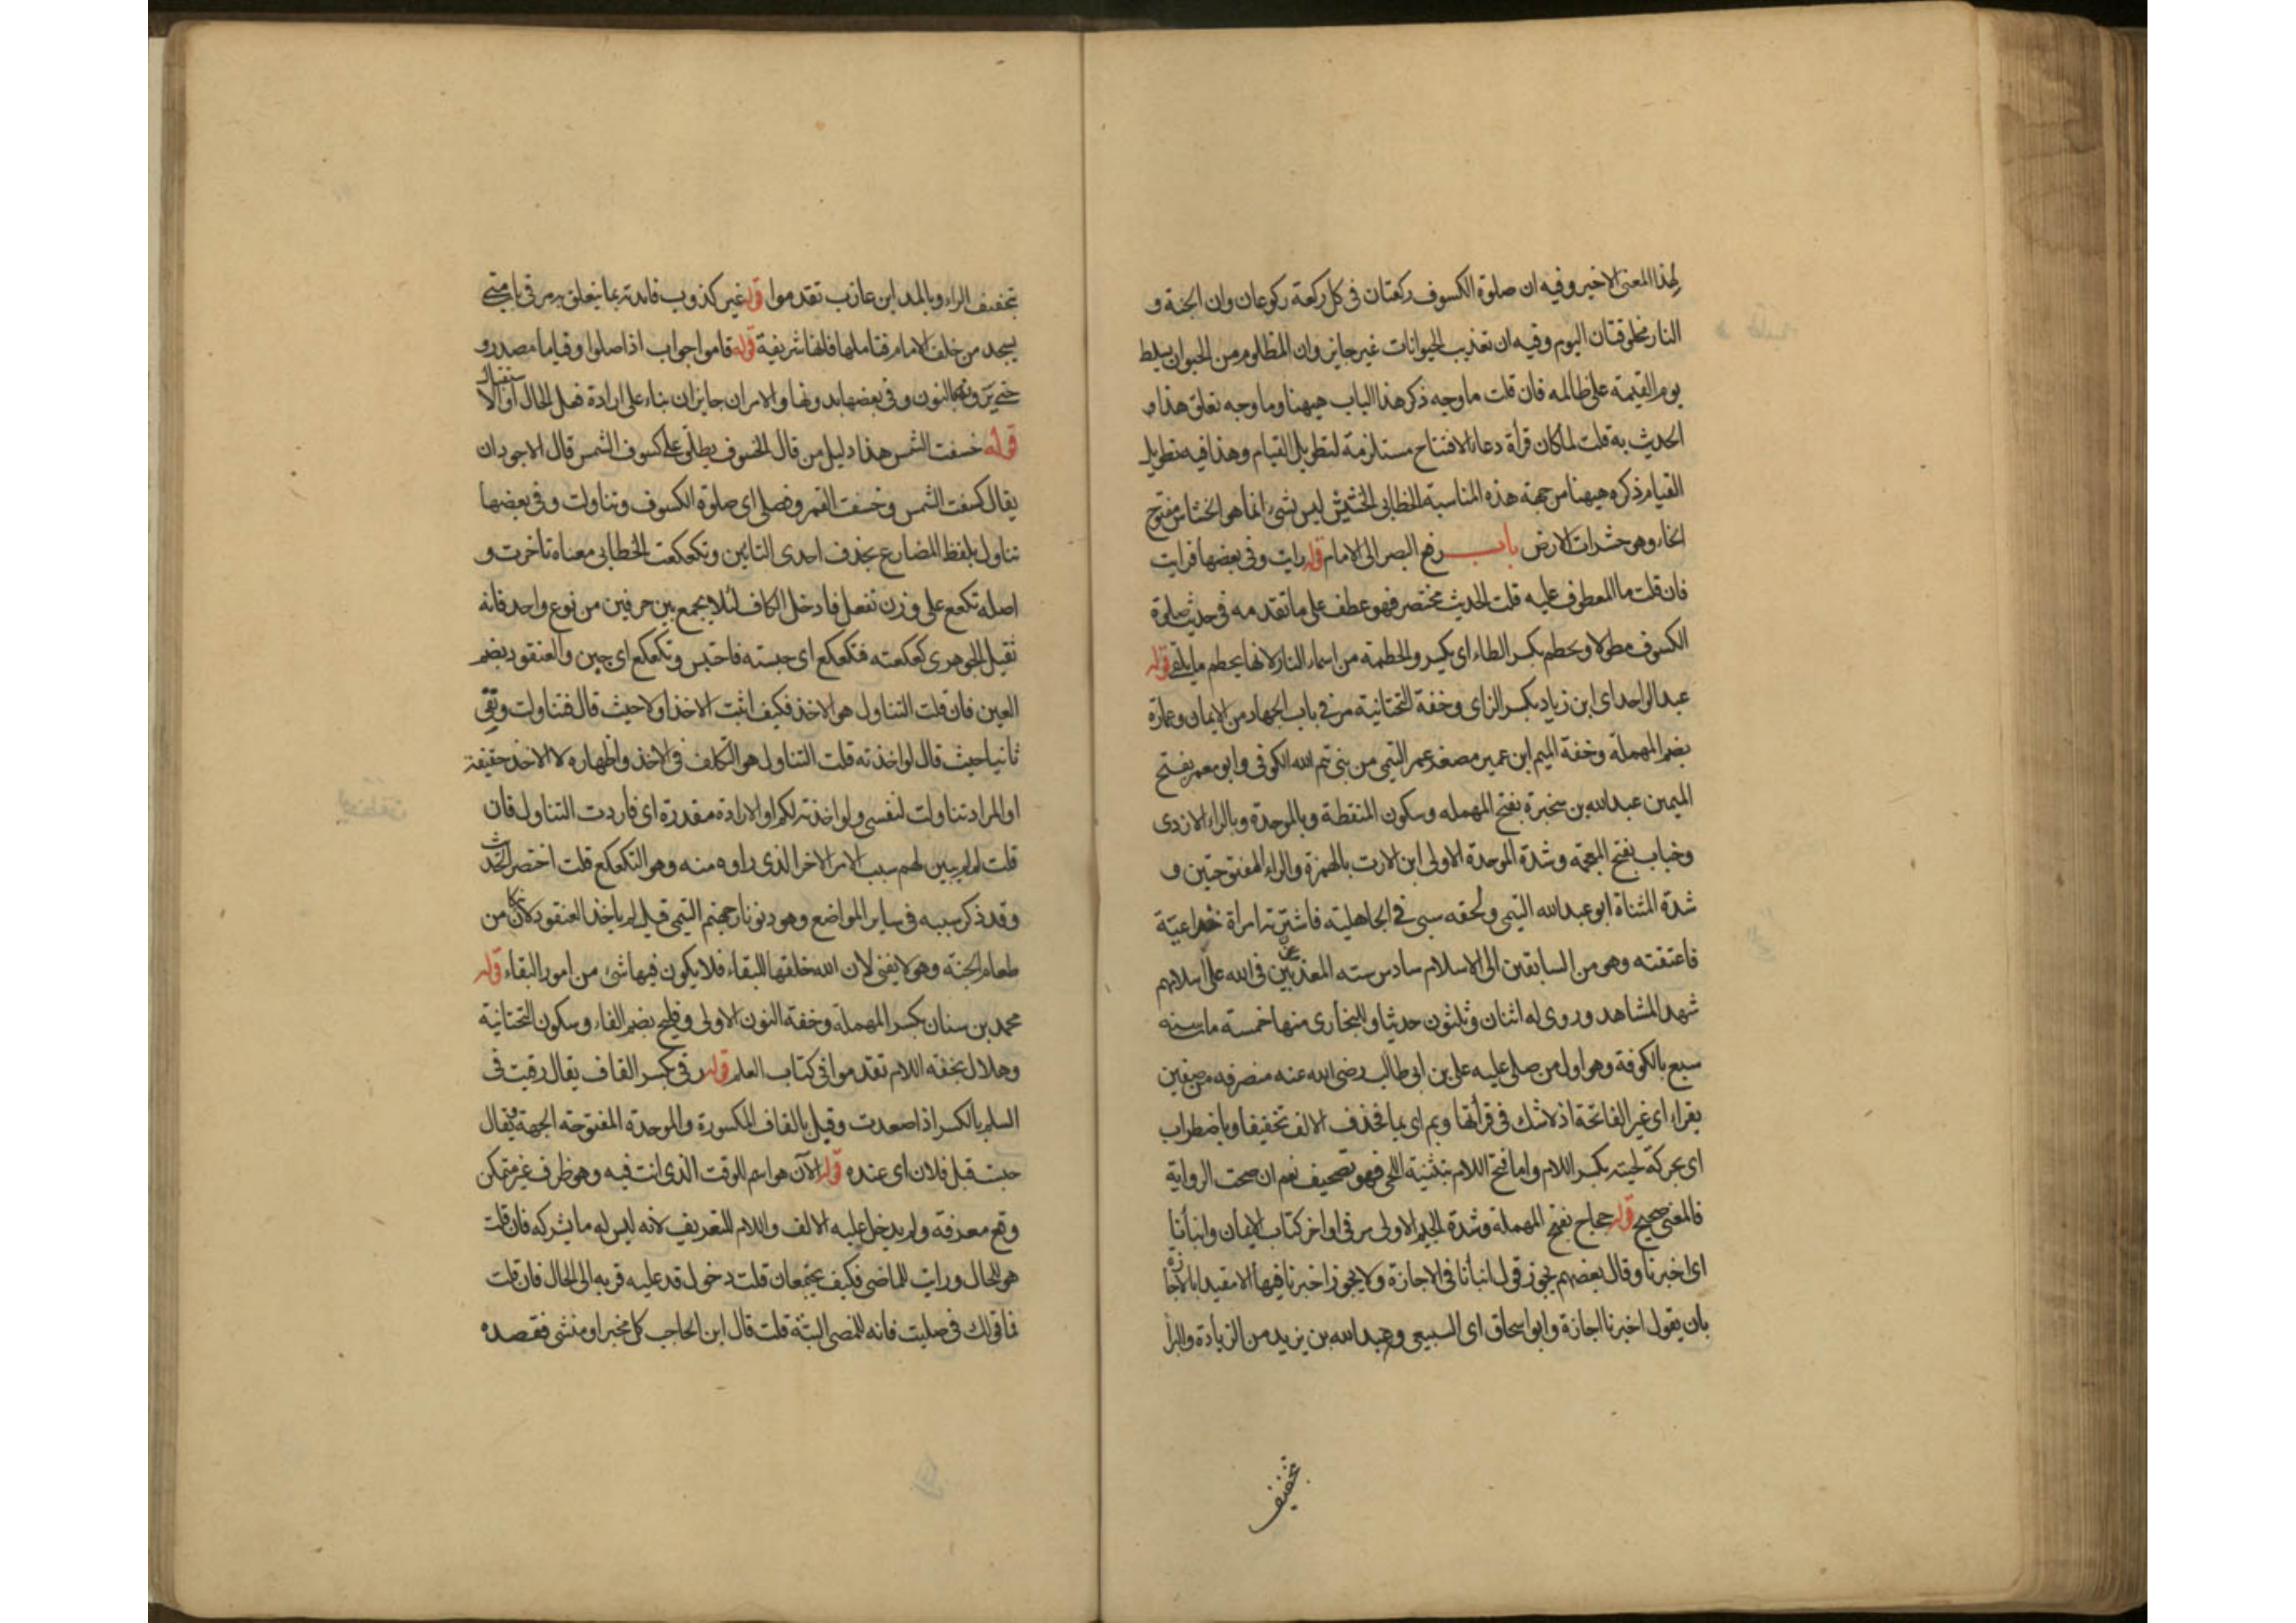 لهذا المعنى الاخير وفيه ان صلوة الكسوف ركعتان فى كل ركعة ركوعان وان الجنة و
النار مخلوقتان اليوم وفيه ان تعذيب الحيوانات غير جايز وان المظلوم من الحيوان يسلط
يوم القيمة على ظالمه فان قلت ما وجه ذكر هذا الباب هيهنا وما وجه تعلق هذا
الحديث به قلت لما كان قرأة دعاء الافتتاح مستلزمة لتطويل القيام وهذا فيه تطويل
القيام ذكره هيهنا من جهة هذه المناسبة الخطابى الخشيش ليس بشئ انما هو الخشاش مفتوح
الخاء وهو حشرات الارض باب رفع البصر الى الامام قوله رايت وفى بعضها فرايت
فان قلت ما المعطوف عليه قلت الحديث مختصر فهو عطف على ما تقدمه فى حديث صلوة
الكسوف مطولا ويحطم بكسر الطاء اى يكسر والحطمة من اسماء النار لانها يحطم ما يلقى قوله
عبد الواحد اى ابن زياد بكسر الزاى وخفة التحتانية مر فى باب الجهاد من الايمان وعمارة
بضم المهملة وخفة الميم ابن عمير مصغر عمر التيمى من بنى تيم الله الكوفى وابو معمر بفتح
الميمين عبد الله بن سخبرة بفتح المهمله وسكون المنقطة وبالموحدة وبالراء الازدى
وخباب بفتح المعجمة وشدة الموحدة الاولى ابن الارت بالهمزة والراء المفتوحتين و
شدة المثناة ابو عبد الله التيمى ولحقه سبى فى الجاهلية فاشترته امراة خزاعيّة
فاعتقته وهو من السابقين الى الاسلام سادس سته المعذبين فى الله على اسلامهم
شهد المشاهد وروى له اثنان وثلثون حديثا وللبخارى منها خمسة مات سنه
سبع بالكوفة وهو اول من صلى عليه على بن ابى طالب رضى الله عنه منصرفه من صفين
يقراء اى غير الفاتحة اذ لا شك فى قرأتها وبم اى بما فحذف الالف تخفيفا وباضطراب
اى بحركة لحيته بكسر اللام واما فتح اللام بتثنية اللحى فهو تصحيف نعم ان صحت الرواية
فالمعنى صحيح قوله حجاج بفتح المهملة وشدة الجيم الاولى مر فى اواخر كتاب الايمان وانبأنا
اى اخبرنا وقال بعضهم يجوز قول انبأنا فى الاجازة ولا يجوز اخبرنا فيها الا مقيدا بالاجازة
بان يقول اخبرنا اجازة وابو اسحاق اى السبيعى وعبد الله بن يزيد من الزيادة والبرا
تخفيف
بتخفيف الراء وبالمد ابن عازب تقدموا قوله غير كذوب فائدته بما يتعلق به مر فى باب متى
يسجد من خلف الامام فتاملها فانها شريفة قوله قاموا جواب اذا صلوا وقياما مصدر و
حتى يرونه بالنون وفى بعضها بدونها والامران جايزان بناء على ارادة فعل الحال او الاستقبال
قوله خسفت الشمس هذا دليل من قال الخسوف يطلق على كسوف الشمس قال الاجود ان
يقال كسفت الشمس وخسفت القمر وفصلى اى صلوة الكسوف وتناولت وفى بعضها
تناول بلفظ المضارع بحذف احدى التائين وتكعكعت الخطابى معناه تاخرت و
اصله تكعع على وزن تفعل فادخل الكاف لئلا يجمع بين حرفين من نوع واحد فانه
ثقيل الجوهرى كعكعته فتكعكع اى حبسته فاحتبس وتكعكع اى جبن والعنقود بضم
العين فان قلت التناول هو الاخذ فكيف اثبت الاخذ اولا حيث قال فتناولت ونفى
ثانيا حيث قال لو اخذته قلت التناول هو التكلف فى الاخذ واظهاره لا الاخذ حقيقة
او المراد تناولت لنفسى ولو اخذته لكم او الارادة مقدرة اى فاردت التناول فان
قلت لم لم يبين لهم سبب الامر الاخر الذى راوه منه وهو التكعكع قلت اختصر الحديث
وقد ذكر سببه فى ساير المواضع وهو دنو نار جهنم التيمى قيل لم ياخذ العنقود لانه كان من
طعام الجنة وهو لا يفنى لان الله خلقها للبقاء فلا يكون فيها شئ من امور البقاء قوله
محمد بن سنان بكسر المهملة وخفة النون الاولى وفليح بضم الفاء وسكون التحتانية
وهلال بخفه اللام تقدموا فى كتاب العلم قوله رقى بكسر القاف يقال رقيت فى
السلم بالكسر اذا صعدت وقبل بالقاف المكسورة والموحدة المفتوحة الجهة يقال
جئت قبل فلان اى عنده قوله الآن هو اسم للوقت الذى انت فيه وهو ظرف غير متمكن
وقع معرفة ولم يدخل عليه الالف واللام للتعريف لانه ليس له ما يشركه فان قلت
هو للحال ورايت للماضى فكيف يجتمعان قلت دخول قد عليه قربه الى الحال فان قلت
فما قولك فى صليت فانه للمضى البتّة قلت قال ابن الحاجب كل مخبر او منشى فقصده